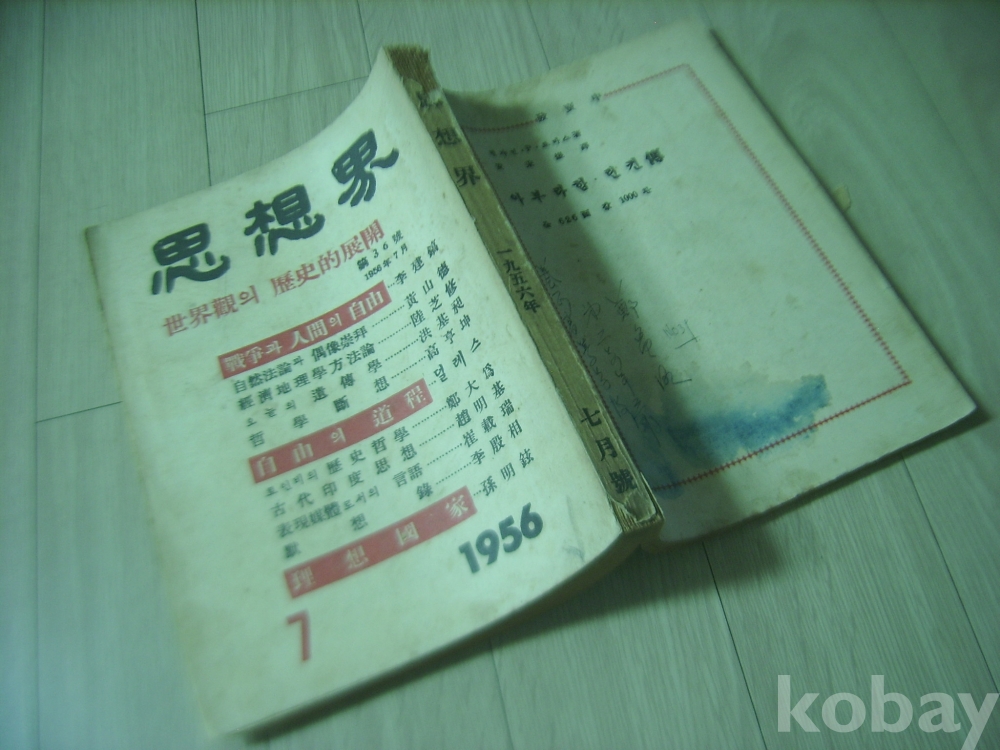 思想界
世界觀의 歷史的展開
第36號
1956年7月
戰爭과 人間의 自由 李建鎬
自然法論과 偶像崇拜 黃山德
經濟地理學方法論 陸芝修
도는의 遺傳學 洪基昶
哲學斷想 高亨坤
自由의道程 덜레스
토인비의 歷史哲學 鄭大爲
古代印度思想 趙明基
表現媒體로서의 言語 崔載瑞
默想錄 李殷相
理想國家 孫明鉉
1956
7
思想界
一九五六年
七月號
全 526面 값 1000
kobay